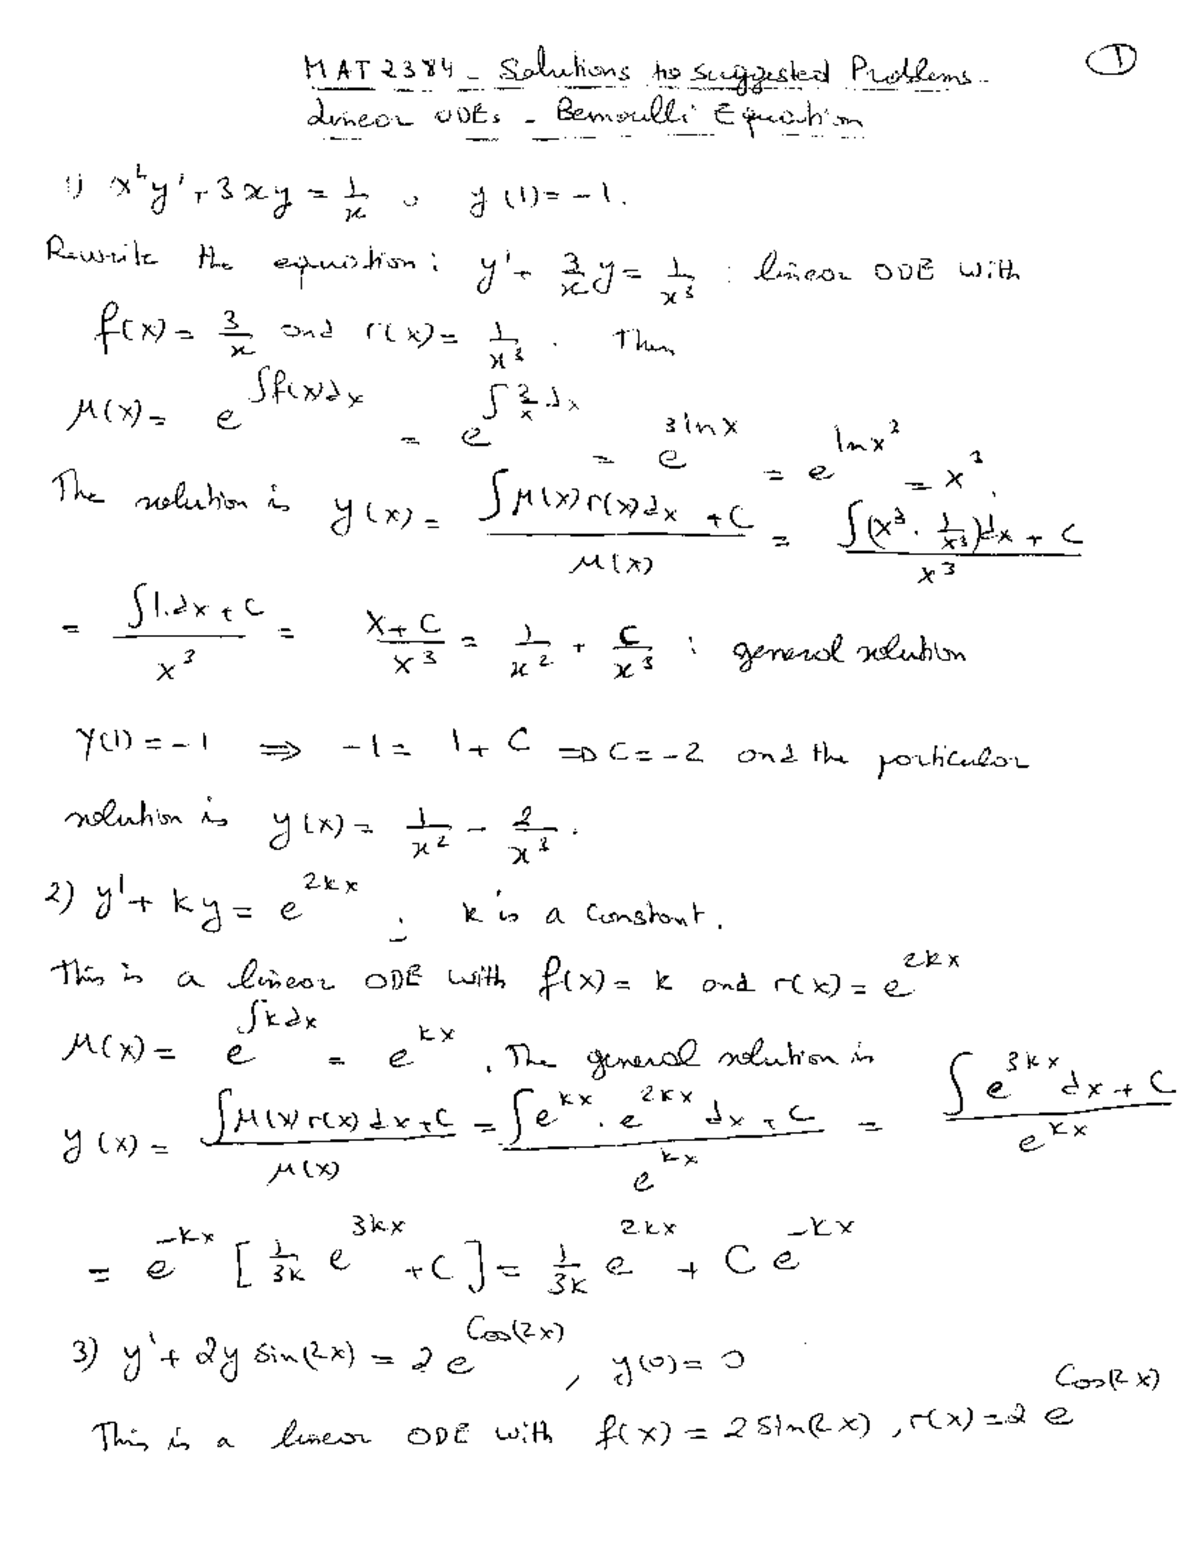 ①
MAT 2384 - Solutions to Suggested Problems.
Linear ODEs - Bernoulli Equation
1) x²y' + 3xy = 1/x , y(1) = -1.
Rewrite the equation : y' + 3/x y = 1/x³ : linear ODE with
f(x) = 3/x and r(x) = 1/x³ . Then
μ(x) = e^{∫f(x)dx} = e^{∫3/x dx} = e^{3lnx} = e^{lnx³} = x³.
The solution is y(x) = (∫μ(x)r(x)dx + C)/μ(x) = (∫(x³ · 1/x³)dx + C)/x³
= (∫1.dx + C)/x³ = (x + C)/x³ = 1/x² + C/x³ : general solution
y(1) = -1 ⇒ -1 = 1 + C ⇒ C = -2 and the particular
solution is y(x) = 1/x² - 2/x³ .
2) y' + ky = e^{2kx} ; k is a constant.
This is a linear ODE with f(x) = k and r(x) = e^{2kx}
μ(x) = e^{∫kdx} = e^{kx} . The general solution is
y(x) = (∫μ(x)r(x)dx + C)/μ(x) = (∫e^{kx} . e^{2kx} dx + C)/e^{kx} = (∫e^{3kx}dx + C)/e^{kx}
= e^{-kx} [1/3k e^{3kx} + C] = 1/3k e^{2kx} + C e^{-kx}
3) y' + 2y sin(2x) = 2e^{Cos(2x)} , y(0) = 0
This is a linear ODE with f(x) = 2 sin(2x) , r(x) = 2e^{Cos(2x)}